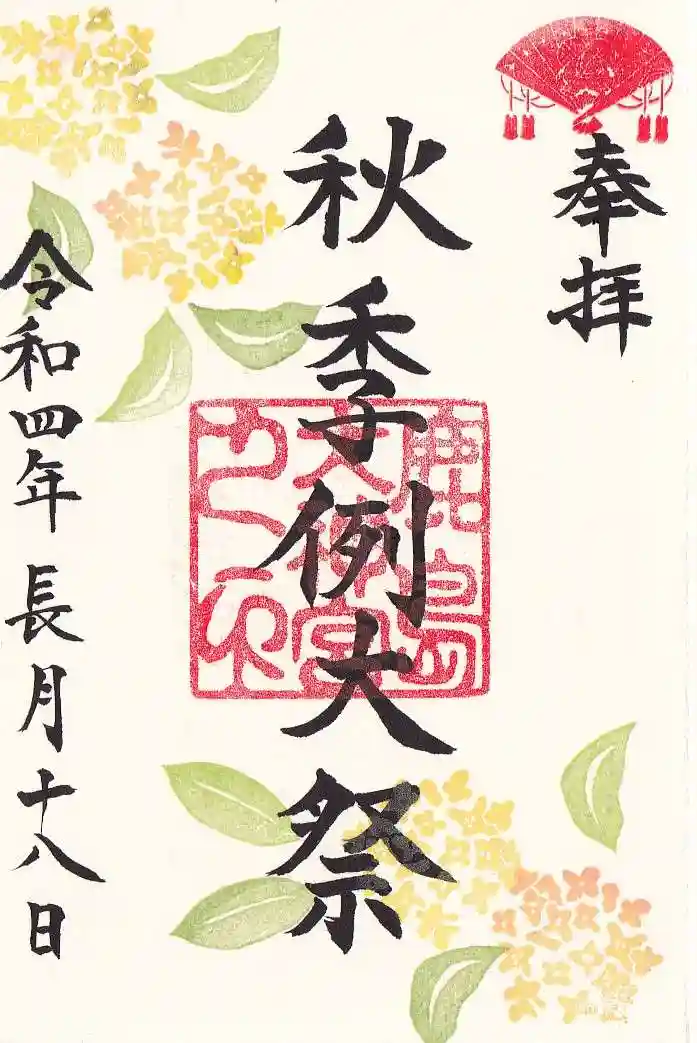 奉拝
秋季例大祭
鹿嶋
天神宮
之印
令和四年長月十八日